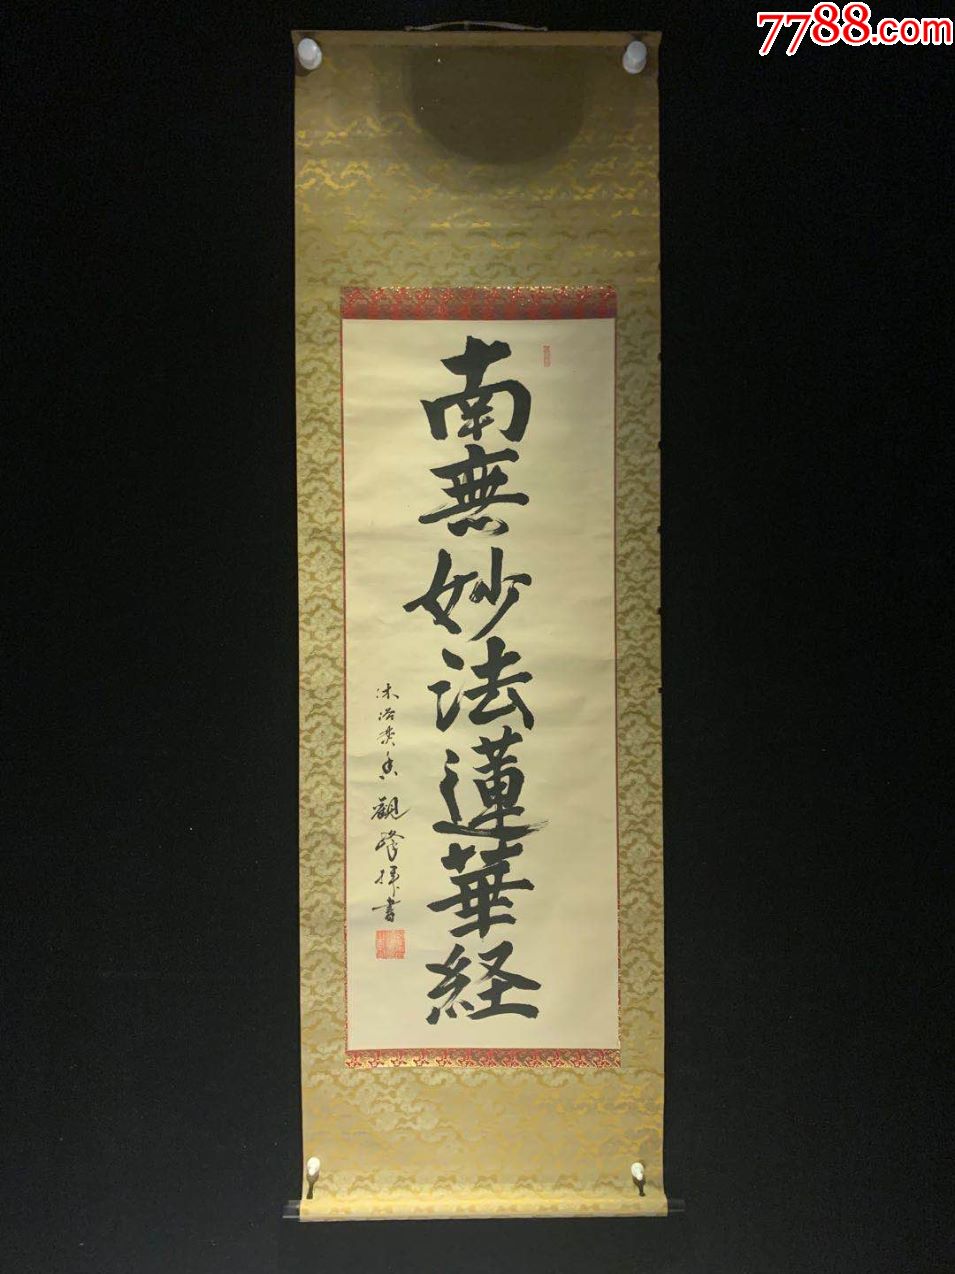 7788.com
南無妙法蓮華経
沐浴焚香 觀峰拝書